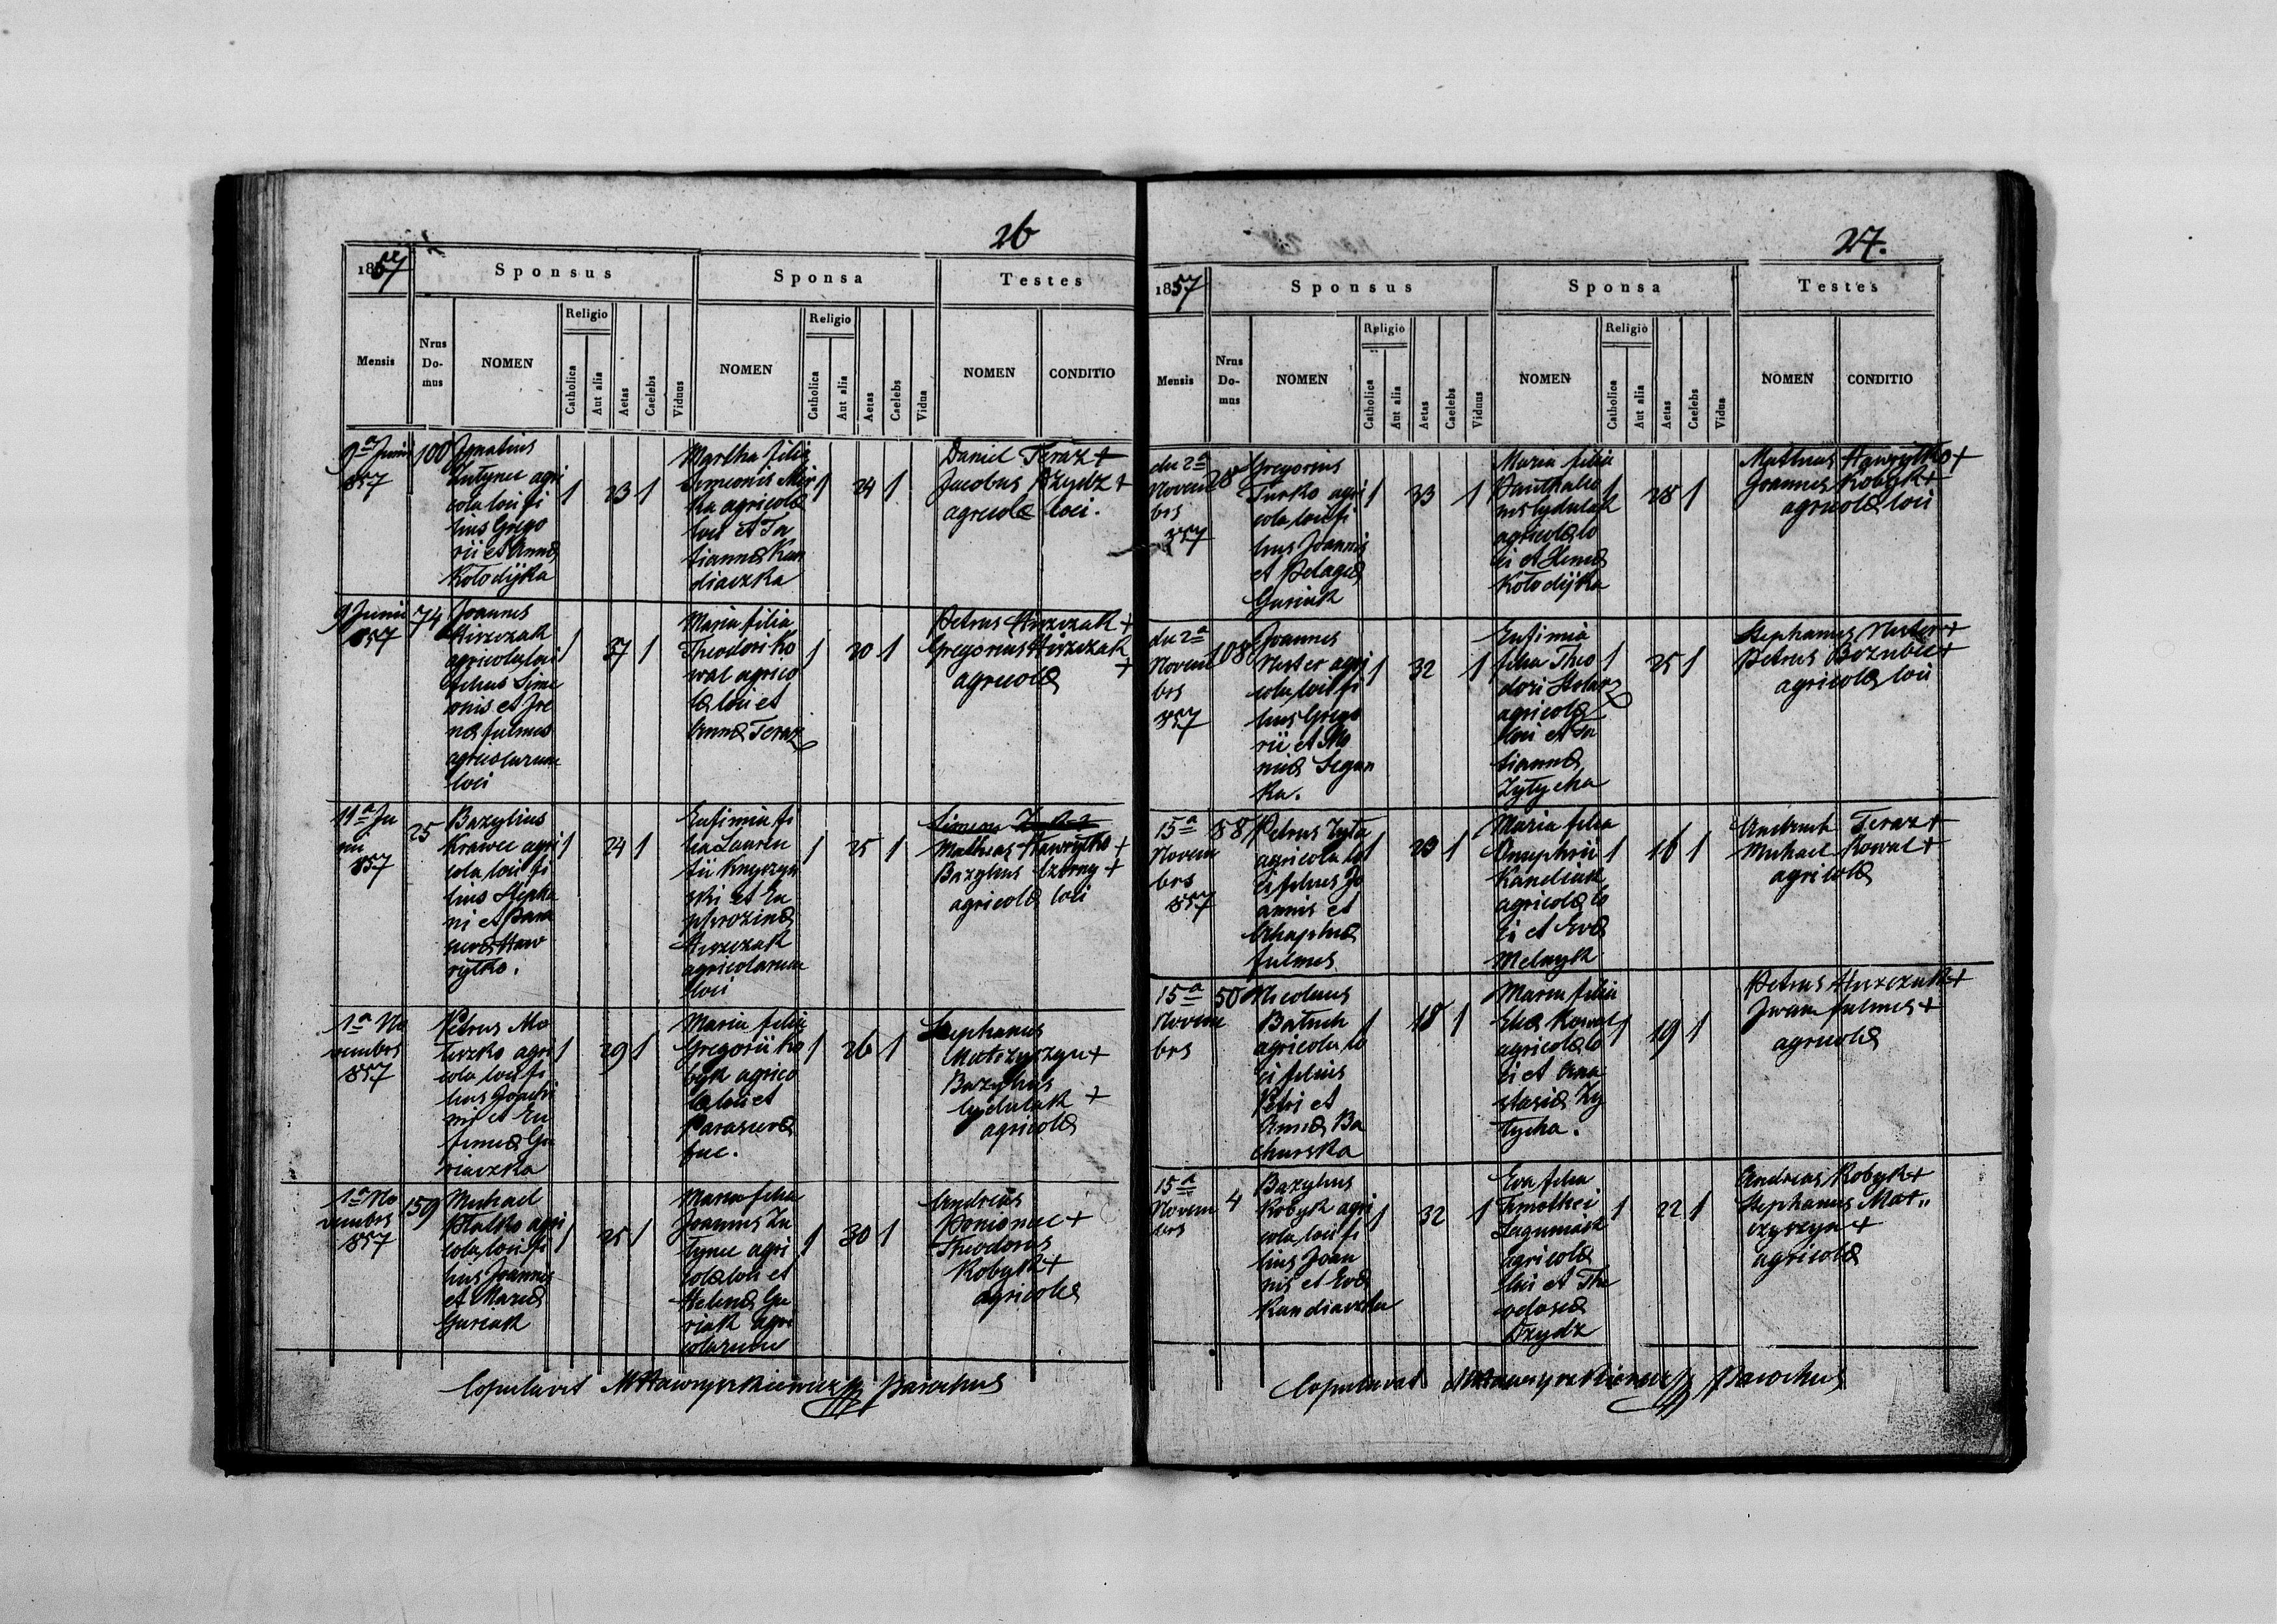 26
1857
Sponsus
Sponsa
Testes
Mensis
Nrus Do-mus
NOMEN
Religio
Catholica
Aut alia
Aetas
Caelebs
Viduus
NOMEN
Religio
Catholica
Aut alia
Aetas
Caelebs
Vidua
NOMEN
CONDITIO
9a Junii
857
100
Ignatius
agri
cola loci fi
lius Grego
rii et Annæ
Kołodijka
1 23 1
Martha filia
Simeonis
agricolæ
loci et Ta
tiannæ Kan
diaczka
1 24 1
Daniel Teraz +
Jacobus Dzydz +
agricolæ loci.
9 Junii
857
74
Joannes
Hiszczak
agricola loci
filius Sime
onis et Ire
næ fulmes
agricolarum
loci
1 37 1
Maria filia
Theodori Ko
wal agrico
læ loci et
Annæ Teraz
1 20 1
Petrus Hiszczak +
Gregorius Hiszczak
+
agricolæ
11a Ju
nii
857
25
Bazylius
Krawec agri
cola loci fi
lius Stepha
ni et Para
scevæ Haw
ryłko.
1 24 1
Eufimia fi
lia Lauren
tii
ski et Eu
phrozinæ
Hiszczak
agricolarum
loci
1 25 1
Simeon
Mathias Hawryłko +
Bazylius Czorny +
agricolæ loci
1a No
vembris
857
Petrus Mo
teczko agri
cola loci fi
lius Joachi
mi et Eu
fimiæ Gu
riaczka
1 29 1
Maria filia
Gregorii Ko
byk agrico
læ loci et
Parascevæ
fuc.
1 26 1
Stephanus
Matczyszyn +
Bazylius
Cydulak +
agricolæ
1a No
vembris
857
159
Michael
agri
cola loci fi
lius Joannis
et Mariæ
Guriak
1 25 1
Maria filia
Joannis Zu
tyniec agri
colæ loci et
Helenæ Gu
riak agri
colarum
1 30 1
Andreas
+
Theodorus
Kobyk +
agricolæ
Copulavit MHawryszkiewicz Parochus
27.
1857
Sponsus
Sponsa
Testes
Mensis
Nrus Do-mus
NOMEN
Religio
Catholica
Aut alia
Aetas
Caelebs
Viduus
NOMEN
Religio
Catholica
Aut alia
Aetas
Caelebs
Vidua
NOMEN
CONDITIO
die 2a
Novem
bris
857
28
Gregorius
Turko agri
cola loci fi
lius Joannis
et Pelagiæ
Guriak
1 33 1
Maria filia
Panthaleo
nis Cydulak
agricolæ lo
ci et Xeniæ
Kołodijka
1 28 1
Mathias Hawryłko +
Joannes Kobyk +
agricolæ loci
die 2a
Novem
bris
857
108
Joannes
Nester agri
cola loci fi
lius Grego
rii et
Segun
ka.
1 32 1
Eufimia
filia Theo
dori Stolarz
agricolæ
loci et Ta
tiannæ
Zytycha
1 25 1
Stephanus Nester +
Petrus +
agricolæ loci
15a
Novem
bris
857
88
Petrus Zyta
agricola lo
ci filius Jo
annis et
Ahaphiæ
fulmes
1 23 1
Maria filia
Onuphrii
Kandiuk
agricolæ lo
ci et Evæ
Melnyk
1 16 1
Teraz +
Michael Kowal +
agricolæ
15a
Novem
bris
50
Nicolaus
Batiuch
agricola lo
ci filius
Petri et
Annæ Ba
churska
1 18 1
Maria filia
Eliæ Kowal
agricolæ lo
ci et Ana
stasiæ Zy
tycha.
1 19 1
Petrus Hiszczak +
Iwan fulmes +
agricolæ
15a
Novem
bris
4
Bazylius
Kobyk agri
cola loci fi
lius Joan
nis et Evæ
Kandiaczka
1 32 1
Eva filia
Timothei
agricolæ
loci et The
odosiæ
Dzydz
1 22 1
Andreas Kobyk +
Stephanus Mat„
czyszyn +
agricolæ
Copulavit MHawryszkiewicz Parochus